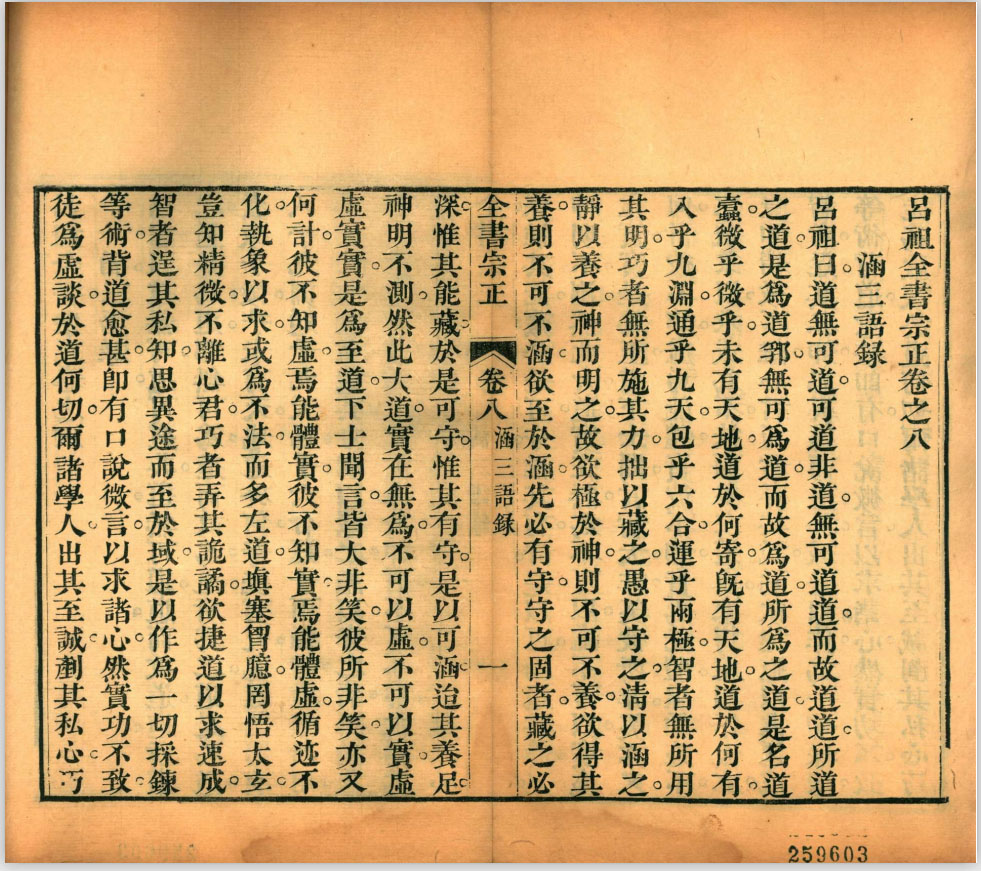 呂祖全書宗正卷之八
涵三語録
呂祖曰道無可道可道非道無可道道而故道道所道
之道是為道郛無可為道而故為道所為之道是名道
蠧微乎微乎未有天地道於何寄旣有天地道於何有
入乎九淵通乎九天包乎六合運乎兩極智者無所用
其明巧者無所施其力拙以藏之愚以守之清以涵之
靜以養之神而明之故欲極於神則不可不養欲得其
養則不可不涵欲至於涵先必有守守之固者藏之必
全書宗正
卷八
涵三語録
一
深惟其能藏於是可守惟其有守是以可涵迨其養足
神明不測然此大道實在無為不可以虛不可以實虛
虛實實是為至道下士聞言皆大非笑彼所非笑亦又
何計彼不知虛焉能體實彼不知實焉能體虛循迹不
化執象以求或為不法而多左道塡塞胷臆罔悟太玄
豈知精微不離心君巧者弄其詭譎欲捷道以求速成
智者逞其私知思異途而至於域是以作為一切採鍊
等術背道愈甚卽有口說微言以求諸心然實功不致
徒為虛談於道何切爾諸學人出其至誠剷其私心巧
259603